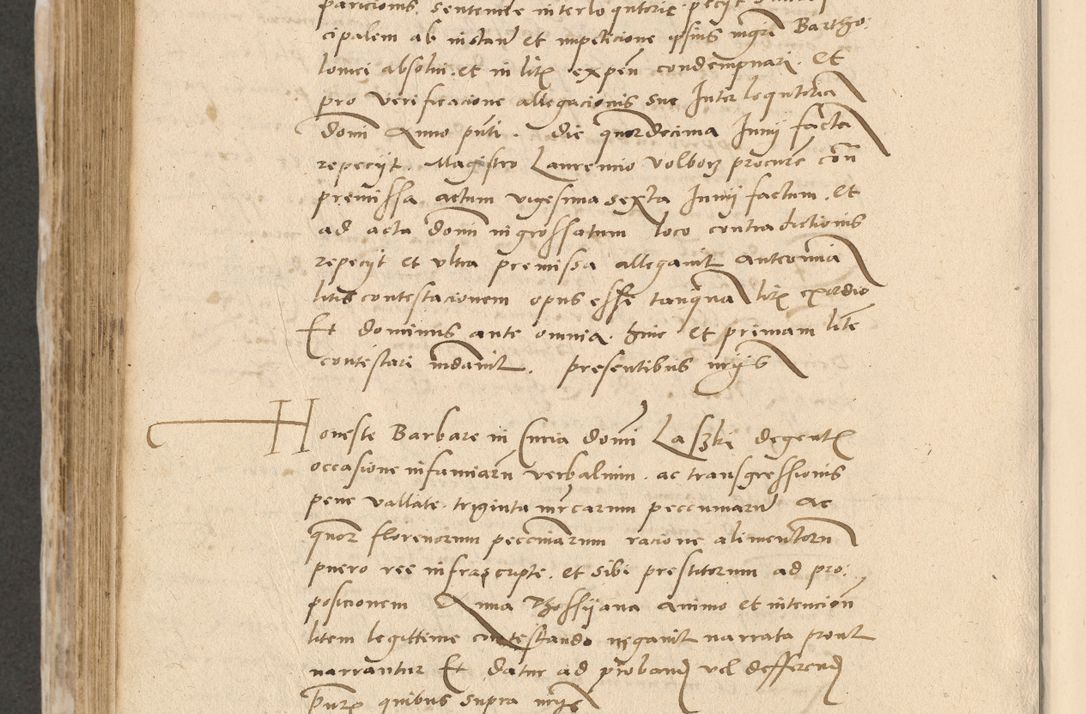 paricionis sentencie interloqutorie peciit
cipalem ab instan et impeticione ipsius mgri Bartho
lomei absolui et in litis expen condempnari. Et
pro verificacione allegacionis sue Interloqutoria
domi Anno pnti. die quardecima Junij facta
repeciit. Magistro Laurencio Volborz procure con
premissa actum vigesima sexta Junij factum. Et
ad acta domi ingrossatum loco contradictionis
repeciit et vltra premissa allegauit
litis contestacionem opus esse tanqua litis exordio
Et dominus ante omnia hinc et primam lite
contestari mdauit. presentibus
Honeste Barbare in Curia domi Laszki degentis
occasione infamiaru verbalium. ac transgressionis
pene vallate triginta mrcarum peccuniaru Ac
quor florenorum pecciniarum racione alimentorum
puero ree infrascripte. et sibi prestitorum ad pro
posicionem Anna Rossijana animo et intencion
litem legittime contestando negauit narrata prout
narrantur Et datur ad proband vel defferend
quibus supra